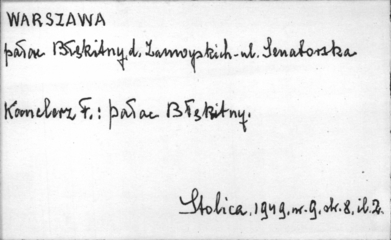 WARSZAWA
pałac Błękitny, d. Zamoyskich - ul. Senatorska
Kanclerz, F.: pałac Błękitny.
Stolica. 1949, nr. 9, str. 8, il. 2.